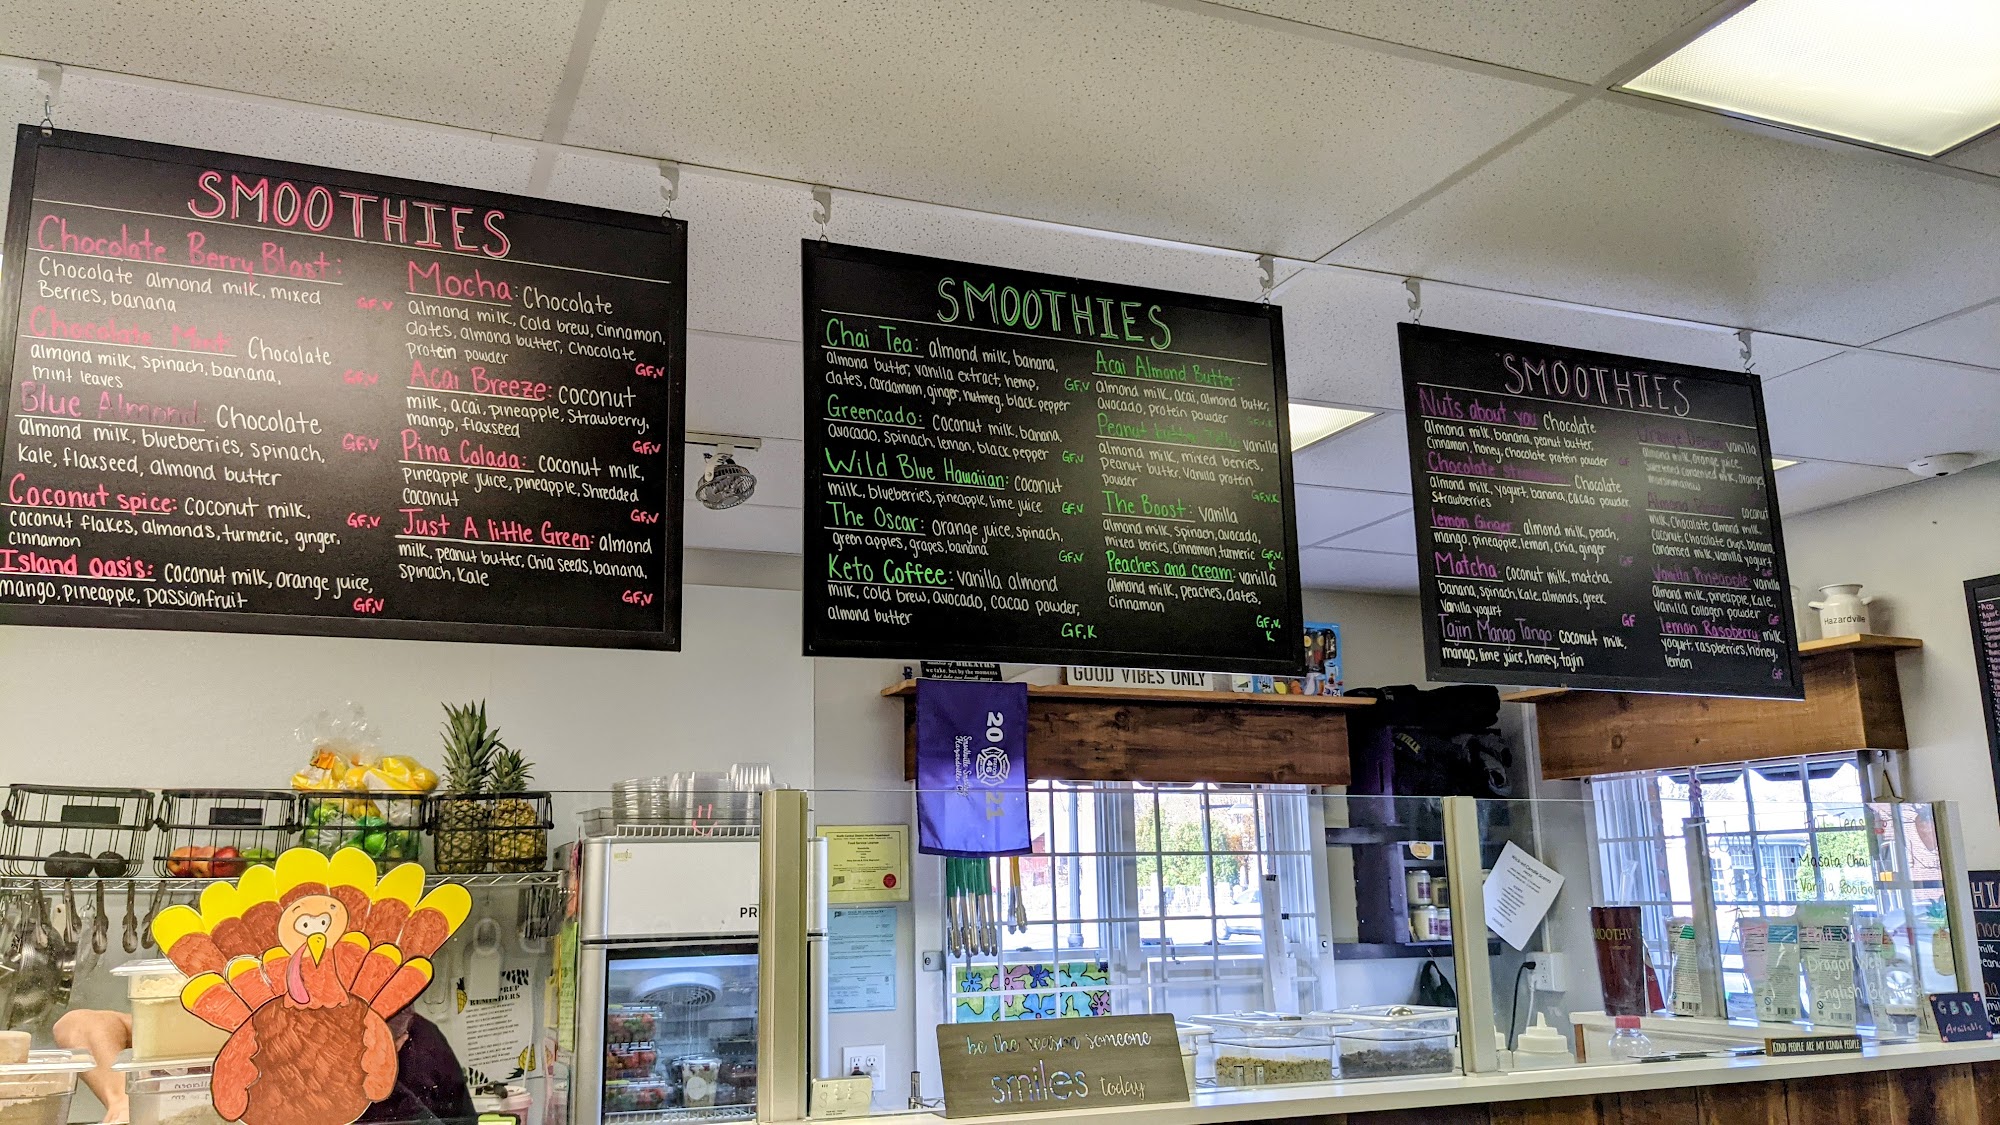 SMOOTHIES
Chocolate Berry Blast:
Chocolate almond milk, mixed
Berries, banana
GF,V
Chocolate Mint: Chocolate
almond milk, spinach, banana,
mint leaves
GF,V
Blue Almond: Chocolate
almond milk, blueberries, spinach,
Kale, flaxseed, almond butter
GF,V
Coconut spice: coconut milk,
coconut flakes, almonds, turmeric, ginger,
cinnamon
GF,V
Island Oasis: coconut milk, orange juice,
mango, pineapple, passionfruit
GF,V
Mocha: Chocolate
almond milk, cold brew, cinnamon,
dates, almond butter, chocolate
protein powder
GF,V
Acai Breeze: coconut
milk, acai, pineapple, strawberry,
mango, flaxseed
GF,V
Pina Colada: coconut milk,
pineapple juice, pineapple, shredded
coconut
GF,V
Just A little Green: almond
milk, peanut butter, chia seeds, banana,
spinach, kale
GF,V
SMOOTHIES
Chai Tea: almond milk, banana,
almond butter, vanilla extract, hemp,
dates, cardamom, ginger, nutmeg, black pepper
GF,V
Greencado: coconut milk, banana
avocado, spinach, lemon, black pepper
GF,V
Wild Blue Hawaiian: coconut
milk, blueberries, pineapple, lime juice
GF,V
The Oscar: orange juice, spinach,
green apples, grapes, banana
GF,V
Keto Coffee: vanilla almond
milk, cold brew, avocado, cacao powder,
almond butter
GF,K
Acai Almond Butter:
almond milk, acai, almond butter,
avocado, protein powder
GF,V,K
Peanut butter vanilla
almond milk, mixed berries,
Peanut butter, Vanilla protein
powder
GF,V,K
The Boost: vanilla
almond milk, spinach, avocado,
mixed berries, cinnamon, turmeric
GF,V,
K
Peaches and cream: vanilla
almond milk, peaches, dates,
cinnamon
GF,V,
K
SMOOTHIES
Nuts about you chocolate
almond milk, banana, peanut butter,
cinnamon, honey, chocolate protein powder
GF
Chocolate Chocolate
almond milk, yogurt, banana, cacao powder
strawberries
lemon Ginger almond milk, peach,
mango, pineapple, lemon, chia, ginger
GF
Matcha: coconut milk, matcha
banana, spinach, kale, almonds, greek
vanilla yogurt
GF
Tajin Mango Tango: coconut milk,
mango, lime juice, honey, tajin
vanilla
almond milk, orange juice,
Sweetened condensed milk, oranges
coconut
milk, chocolate almond milk,
coconut, chocolate chips, banana,
condensed milk, vanilla yogurt
GF
Vanilla Pineapple: vanilla
almond milk, pineapple, kale,
vanilla collagen powder
GF
lemon Raspberry: milk,
yogurt, raspberries, honey,
lemon
GF
Hazardville
GOOD VIBES ONLY
20
46
21
PREP
REMINDERS
PR
be the reason someone
smiles today
Masala Chai
Vanilla Rooibo
Dragon Well
English
KIND PEOPLE ARE MY KINDA PEOPLE
CBD
Available